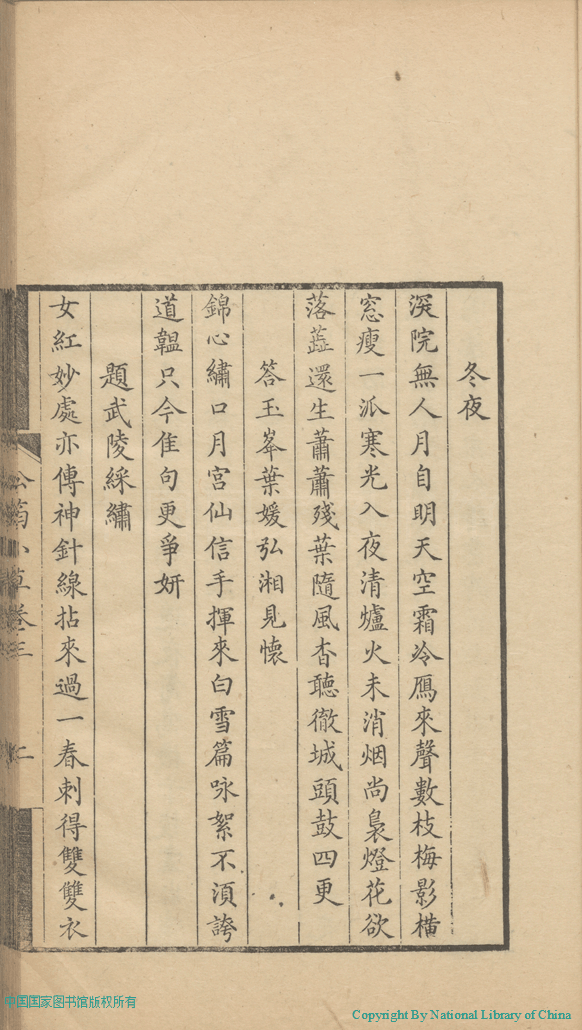 冬夜
深院無人月自明天空霜冷鴈來聲數枝梅影橫
窓瘦一派寒光入夜清爐火未消烟尚裊燈花欲
落蕋還生蕭蕭殘葉隨風杳聽徹城頭鼓四更
答玉峯葉媛弘湘見懷
錦心繡口月宮仙信手揮來白雪篇咏絮不須誇
道韞只今隹句更爭妍
題武陵綵繡
女紅妙處亦傳神針線拈來過一春刺得雙雙衣
菊小草卷三
中国国家图书馆版权所有
Copyright By National Library of China